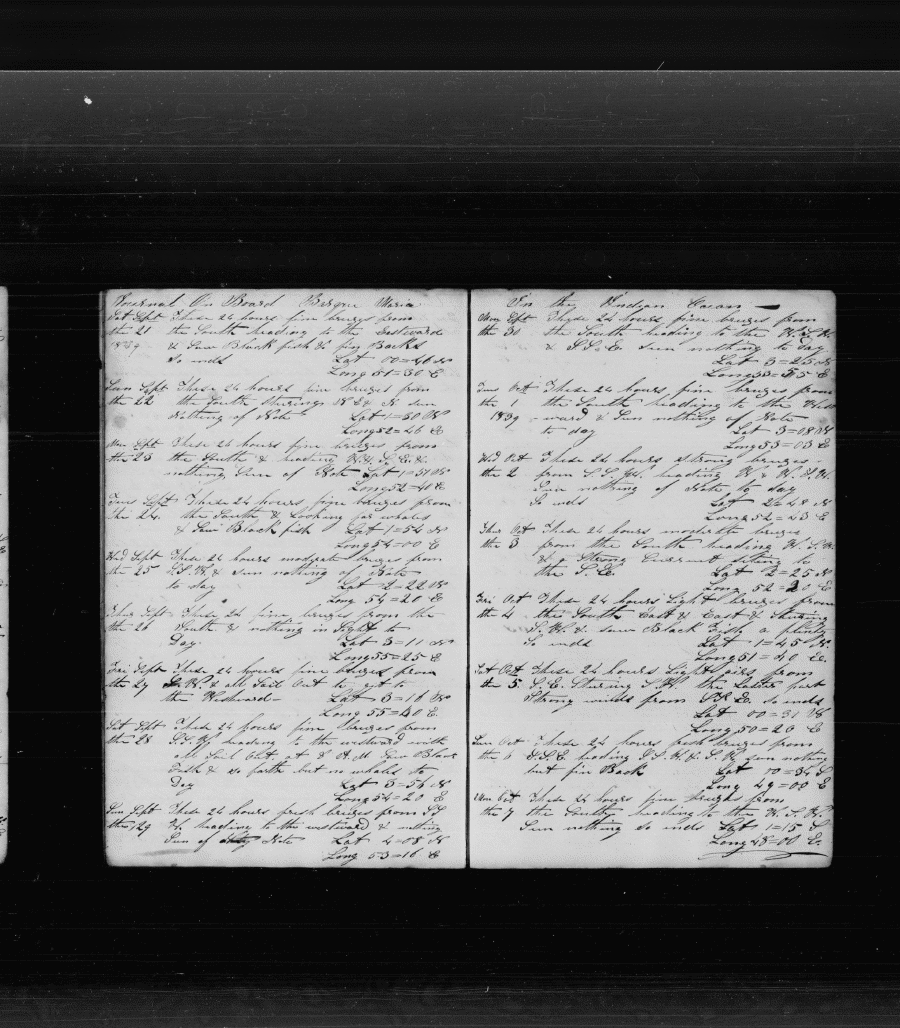 Journal On Board Barque Maria
Sat Sept These 24 hours fine breezes from
the 21 the South heading to the Eastward
1839 & Saw Black fish & fin Backs
So ends Lat 00=46 N
Long 51=30 E
Sun Sept These 24 hours fine breezes from
the 22 the South Stearing N E & N Sen
Nothing of Note Lat 1=50 N
Long 52=46 E
Mon Sept These 24 hours fine breezes from
the 23 the South & heading
nothing Seen of Note Lat 1=51 N
Long 52=41 E
Tues Sept These 24 hours fine breezes from
the 24 the South & Looking for whales
& Saw Black fish Lat 1=54 N
Long 54=00 E
Wed Sept These 24 hours moderate breezes from
the 25 S.S.W. & Sen nothing of Note
to day Lat 2=22 N
Long 54=20 E
Thur Sept These 24 fine breezes from the
the 26 South & nothing in Sight to
Day Lat 3=11 N
Long 55=25 E
Fri Sept These 24 hours fine breezes from
the 27 S.W. & all Sail Out to get to
the Westward Lat 3=16 N
Long 55=40 E
Sat Sept These 24 hours fine breezes from
the 28 S.S.W heading to the westward with
all Sail Out, At 8 A.M Saw Black
Fish & so forth but no whales to
Day Lat 3=54 N
Long 54=20 E
Sun Sept These 24 hours fresh breezes from SS
the 29 W. heading to the westward & nothing
Seen of Note Lat 4=08 N
Long 53=16 E
In the Indian Ocean
Mon Sept These 24 hours fine breezes from
the 30 the South heading to the W.S.W.
& S.S.E Sen nothing to day
Lat 3=25 N
Long 53=55 E
Tues Oct These 24 hours fine breezes from
the 1 the South heading to the West
1839 -ward & Sen nothing of Note
to day Lat 3=08 N
Long 53=03 E
Wed Oct These 24 hours strong breezes
the 2 from S.S.W. heading W. & W.S.W.
Sen nothing of Note to day
So ends Lat 2=48 N
Long 52=43 E
Thur Oct These 24 hours moderate breezes
the 3 from the South heading W.S.W.
& a Strong Current Seting to
the S.E. Lat 2=25 N
Long 52=20 E
Fri Oct These 24 hours Light breezes from
the 4 the South East & East & Stearing
S.W. & saw Black Fish a plenty
So ends Lat 1=45 N.
Long 51=40 E.
Sat Oct These 24 hours Light airs from
the 5 S.E. Stearing S.W. the Latter part
Strong winds from So ends
Lat 00=31 N
Long 50=26 E
Sun Oct These 24 hours fresh breezes from
the 6 E.S.E. heading S.S.W. & S.W Sen nothing
but fin Back Lat 00=34 S
Long 49=00 E
Mon Oct These 24 hours fine breezes from
the 7 the South heading to the W.S.W.
Sen nothing so ends Lat 1=15 S
Long 48=00 E.